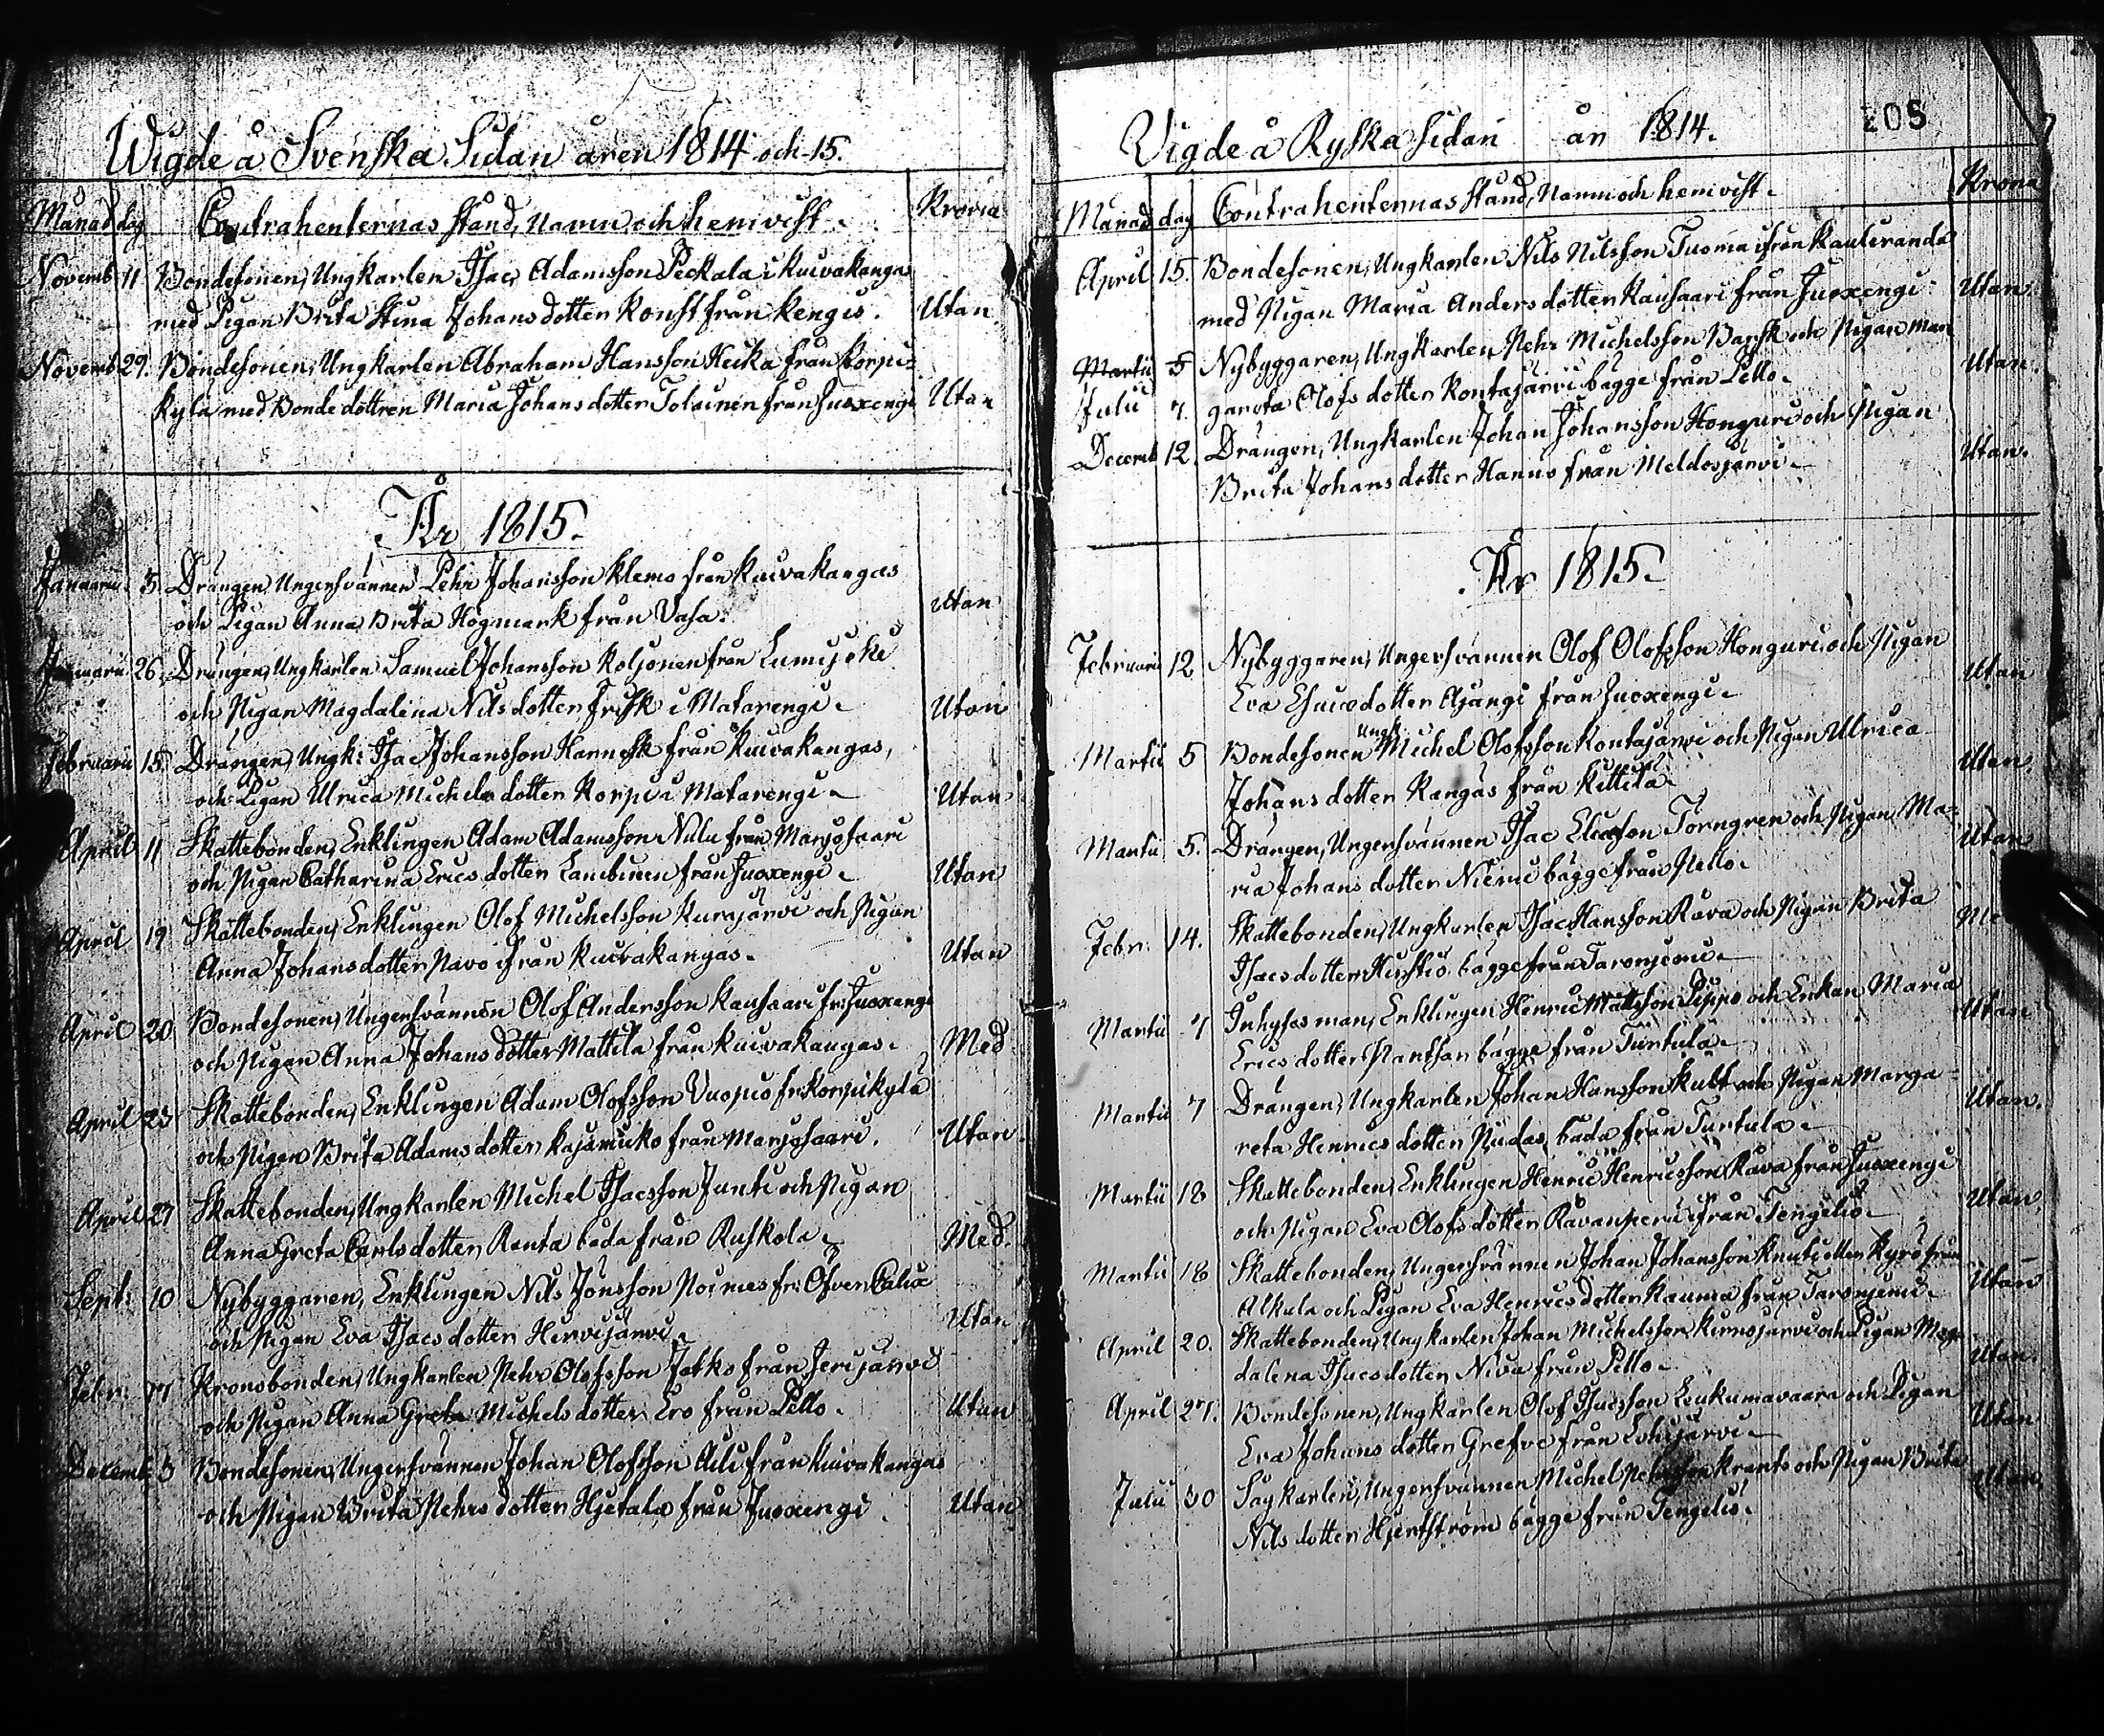 Wigde å Svenska Sidan åren 1814 och 15.
Månad dag Contrahenternas stånd, namn och hemvist. Krona
Novemb 11 Bondesonen, Ungkarlen Isac Adamsson Peckala i Kuivakangas
med Pigan Brita Stina Johans dotter Konst från Kengis. Utan
Novemb 29. Bondesonen, Ungkarlen Abraham Hansson Heika från Korpi-
kylä med Bonde dottren Maria Johans dotter Tolainen från Juoxengi Utan
År 1815.
Januarii 5. Drängen, Ungersvännen Pehr Johansson Klemo från Kuivakangas
och Pigan Anna Brita Högmark från Vasa. Utan
Januarii 26. Drängen, Ungkarlen Samuel Johansson Koljonen från Lumijoki
och Pigan Magdalina Nils dotter Frisk i Matarengi. Utan
Februarii 15. Drängen, Ungk: Isac Johansson Hannesk från Kuivakangas,
och Pigan Ulrica Michels dotter Korpi i Matarengi. Utan
April 11 Skattebonden, Enklingen Adam Adamsson Nulu från Marjosaari
och Pigan Catharina Erics dotter från Juoxengi. Utan
April 19 Skattebonden, Enklingen Olof Michelsson Kurajärvi och Pigan
Anna Johans dotter Pavo ifrån Kuivakangas. Utan
April 20 Bondesonen, Ungersvännen Olof Andersson Kausaari fr: Juoxengi
och Pigan Anna Johans dotter Mattila från Kuivakangas. Med
April 23 Skattebonden, Enklingen Adam Olofsson Vuopio fr: Korpikylä
och Pigan Brita Adams dotter från Marjosaari. Utan
April 27 Skattebonden, Ungkarlen Michel Isacsson Junti och Pigan
Anna Greta Carls dotter Ranta båda från Ruskola. Med.
Sept: 10 Nybyggaren, Enklingen Nils Jönsson fr: Öfver Calix
och Pigan Eva Isacs dotter Hirvijärvi. Utan
Febr: 17 Kronobonden, Ungkarlen Pehr Olofsson Jatko från Jerijärvi
och Pigan Anna Greta Michels dotter Ero från Pello. Utan
Decemb. 3 Bondesonen, Ungersvännen Johan Olofsson Aili från Kuivakangas
och Pigan Brita Pehrs dotter Hjetala från Juoxengi. Utan
Vigde å Ryska sidan år 1814. 205
Månad dag Contrahenternas stånd, Namn och hemvist. Krona
April 15. Bondesonen, Ungkarlen Nils Nilsson Tuoma ifrån Kauliranda
med Pigan Maria Anders dotter Kausaari från Juoxengi. Utan.
Martii 5 Nybyggaren, Ungkarlen Pehr Michelsson Barsk och Pigan Mar
Julii 7. gareta Olofs dotter Kontajärvi bägge från Pello. Utan.
Decemb 12. Drängen, Ungkarlen Johan Johansson Honguri och Pigan
Brita Johans dotter Hannus från Meldosjärvi. Utan.
År 1815.
Februarii 12 Nybyggaren, Ungersvännen Olof Olofsson Honguri och Pigan
Eva dotter Ajangi från Juoxengi. Utan
Martii 5 Bondesonen Ungk: Michel Olofsson Kontajärvi och Pigan Ulrica
Johans dotter Kangas från Kittilä. Utan.
Martii 5. Drängen, Ungersvännen Isac Eliasson Törngren och Pigan Ma-
ria Johans dotter Niemi bägge från Pello. Utan
Febr: 14. Skattebonden, Ungkarlen Isac Hansson Rava och Pigan Brita
Isacs dotter bägge från Turonjemi.
Martii 7 Inhyses man, Enklingen Henric Mattsson Pippo och Enkan Maria
Erics dotter bägge från Turtula. Utan
Martii 7 Drängen, Ungkarlen Johan Hansson Kult och Pigan Marga-
reta Henrics dotter Nudas, båda från Turtula. Utan.
Martii 18 Skattebonden, Enklingen Henric Henricsson Rava från Juoxengi
och Pigan Eva Olofs dotter ifrån Tengeliö. Utan.
Martii 18 Skattebonden, Ungersvännen Johan Johansson Knuti eller Kyrö från
Alkula och Pigan Eva Henrics dotter Rauma från Turonjemi. Utan
April 20. Skattebonden, Ungkarlen Johan Michelsson och Pigan Mag-
dalena Isacs dotter Niva från Pello. Utan.
April 27. Bondesonen, Ungkarlen Olof Isacsson Leukumavaara och Pigan
Eva Johans dotter Grefve från Lohijärvi. Utan
Julii 30 Sågkarlen, Ungersvännen Michel Pehrsson Krants och Pigan Brita
Nils dotter Hjertström bägge från Tengeliö. Utan.